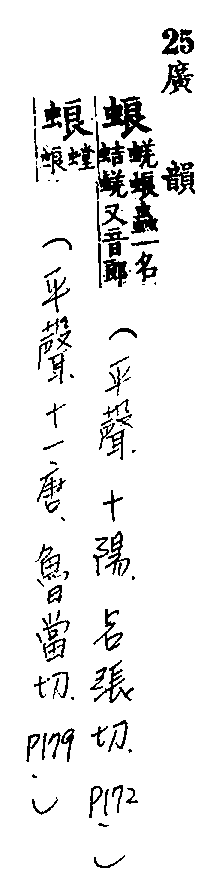 25廣韻
蜋 蜣蜋蟲一名蛣蜣又音郎（平聲.十陽.呂張切.P172.）
蜋 螳蜋（平聲.十一唐.魯當切.P179.）